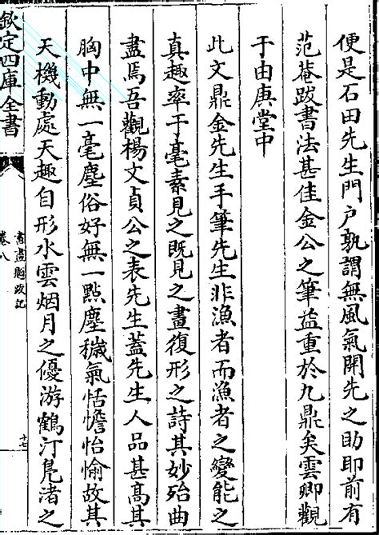 便是石田先生門户孰謂無風氣開先之助即前有
范菴跋書法甚佳金公之筆益重於九鼎矣雲卿觀
于由庚堂中
此文鼎金先生手筆先生非漁者而漁者之變能之
真趣率于毫素見之既見之畫復形之詩其妙殆曲
盡焉吾觀楊文貞公之表先生蓋先生人品甚髙其
胸中無一毫塵俗好無一㸃塵穢氣恬憺怡愉故其
天機動處天趣自形水雲烟月之優游鶴汀鳬渚之
欽定四庫全書
書畫題跋記
卷八
十七